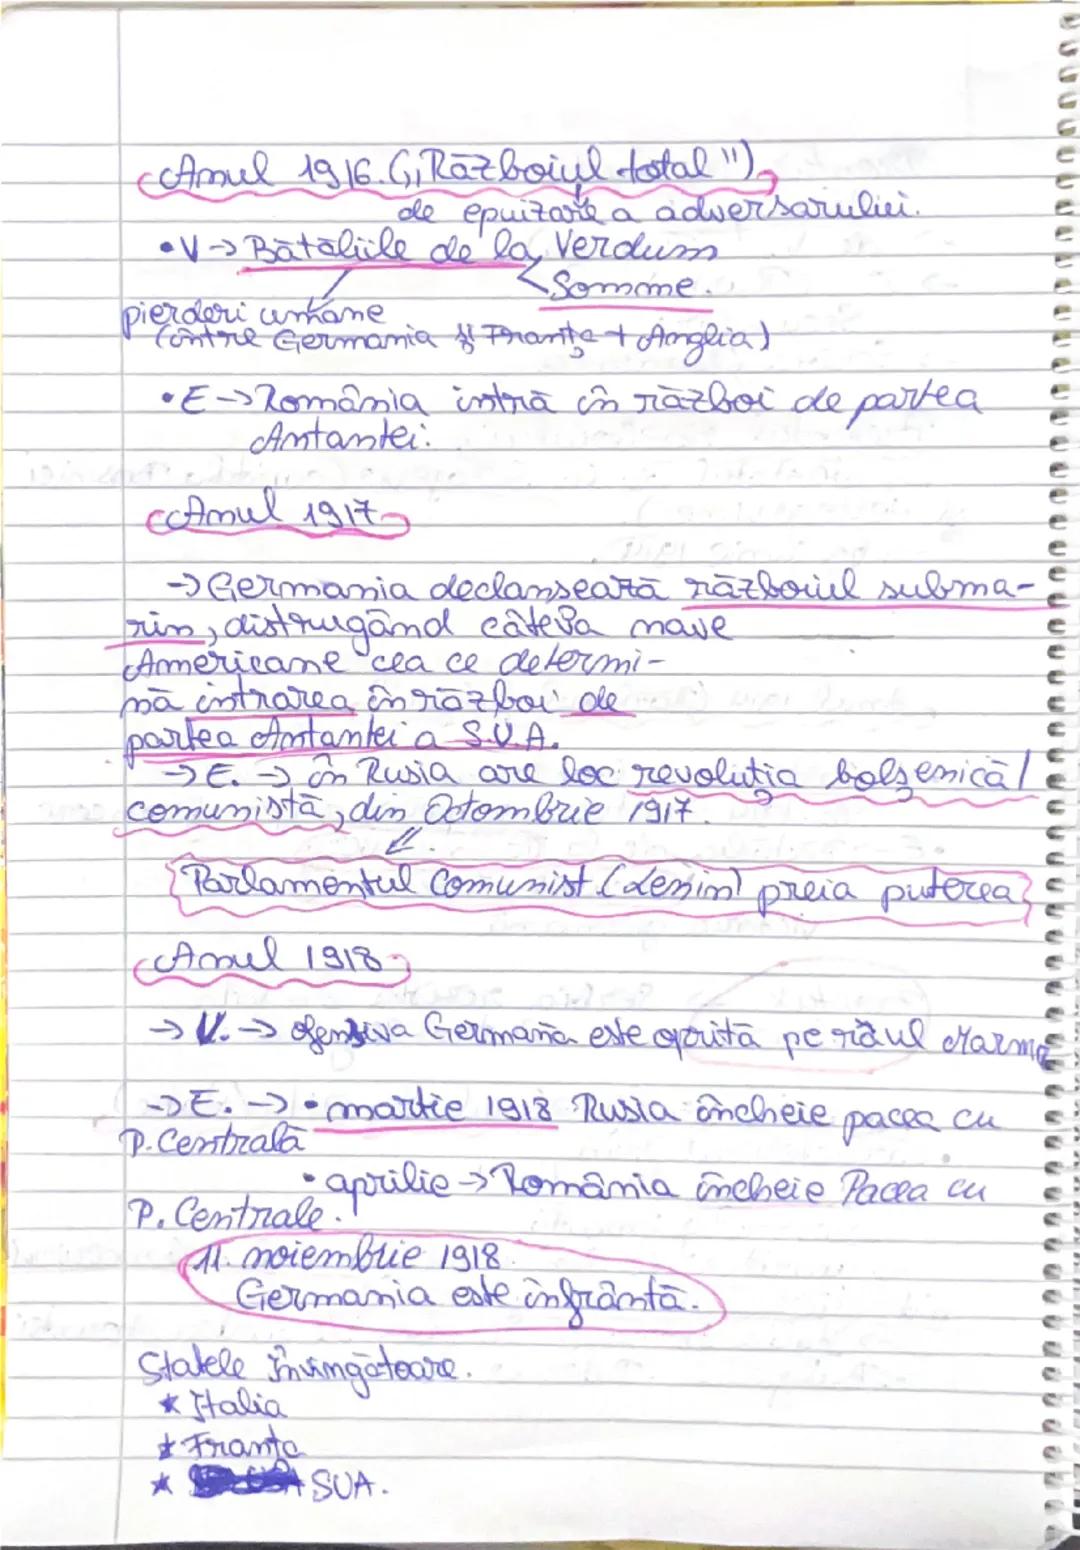 Anul 1916. („Războiul total")
de epuizare a adversarului.
• V → Bătăliile de la Verdum
Somme.
pierderi umane
(între Germania și Franța + Anglia)
• E → România intră în război de partea
Antantei.
Anul 1917
→ Germania declansează războiul subma-
rin, distrugând câteva nave
Americane cea ce determi-
nă intrarea în război de
partea Antantei a S.U.A.
→ E. → în Rusia are loc revoluția bolșenică/
comunistă, din Octombrie 1917.
Parlamentul Comunist (Lenin) preia puterea
Anul 1918
→ V. → ofensiva Germană este oprită pe râul Marna
→ E. → • martie 1918 Rusia încheie pacea cu
P. Centrală
• aprilie → România încheie Pacea cu
P. Centrale.
11. noiembrie 1918.
Germania este înfrântă.
Statele Învingătoare.
* Italia
* Franta
* SUA.